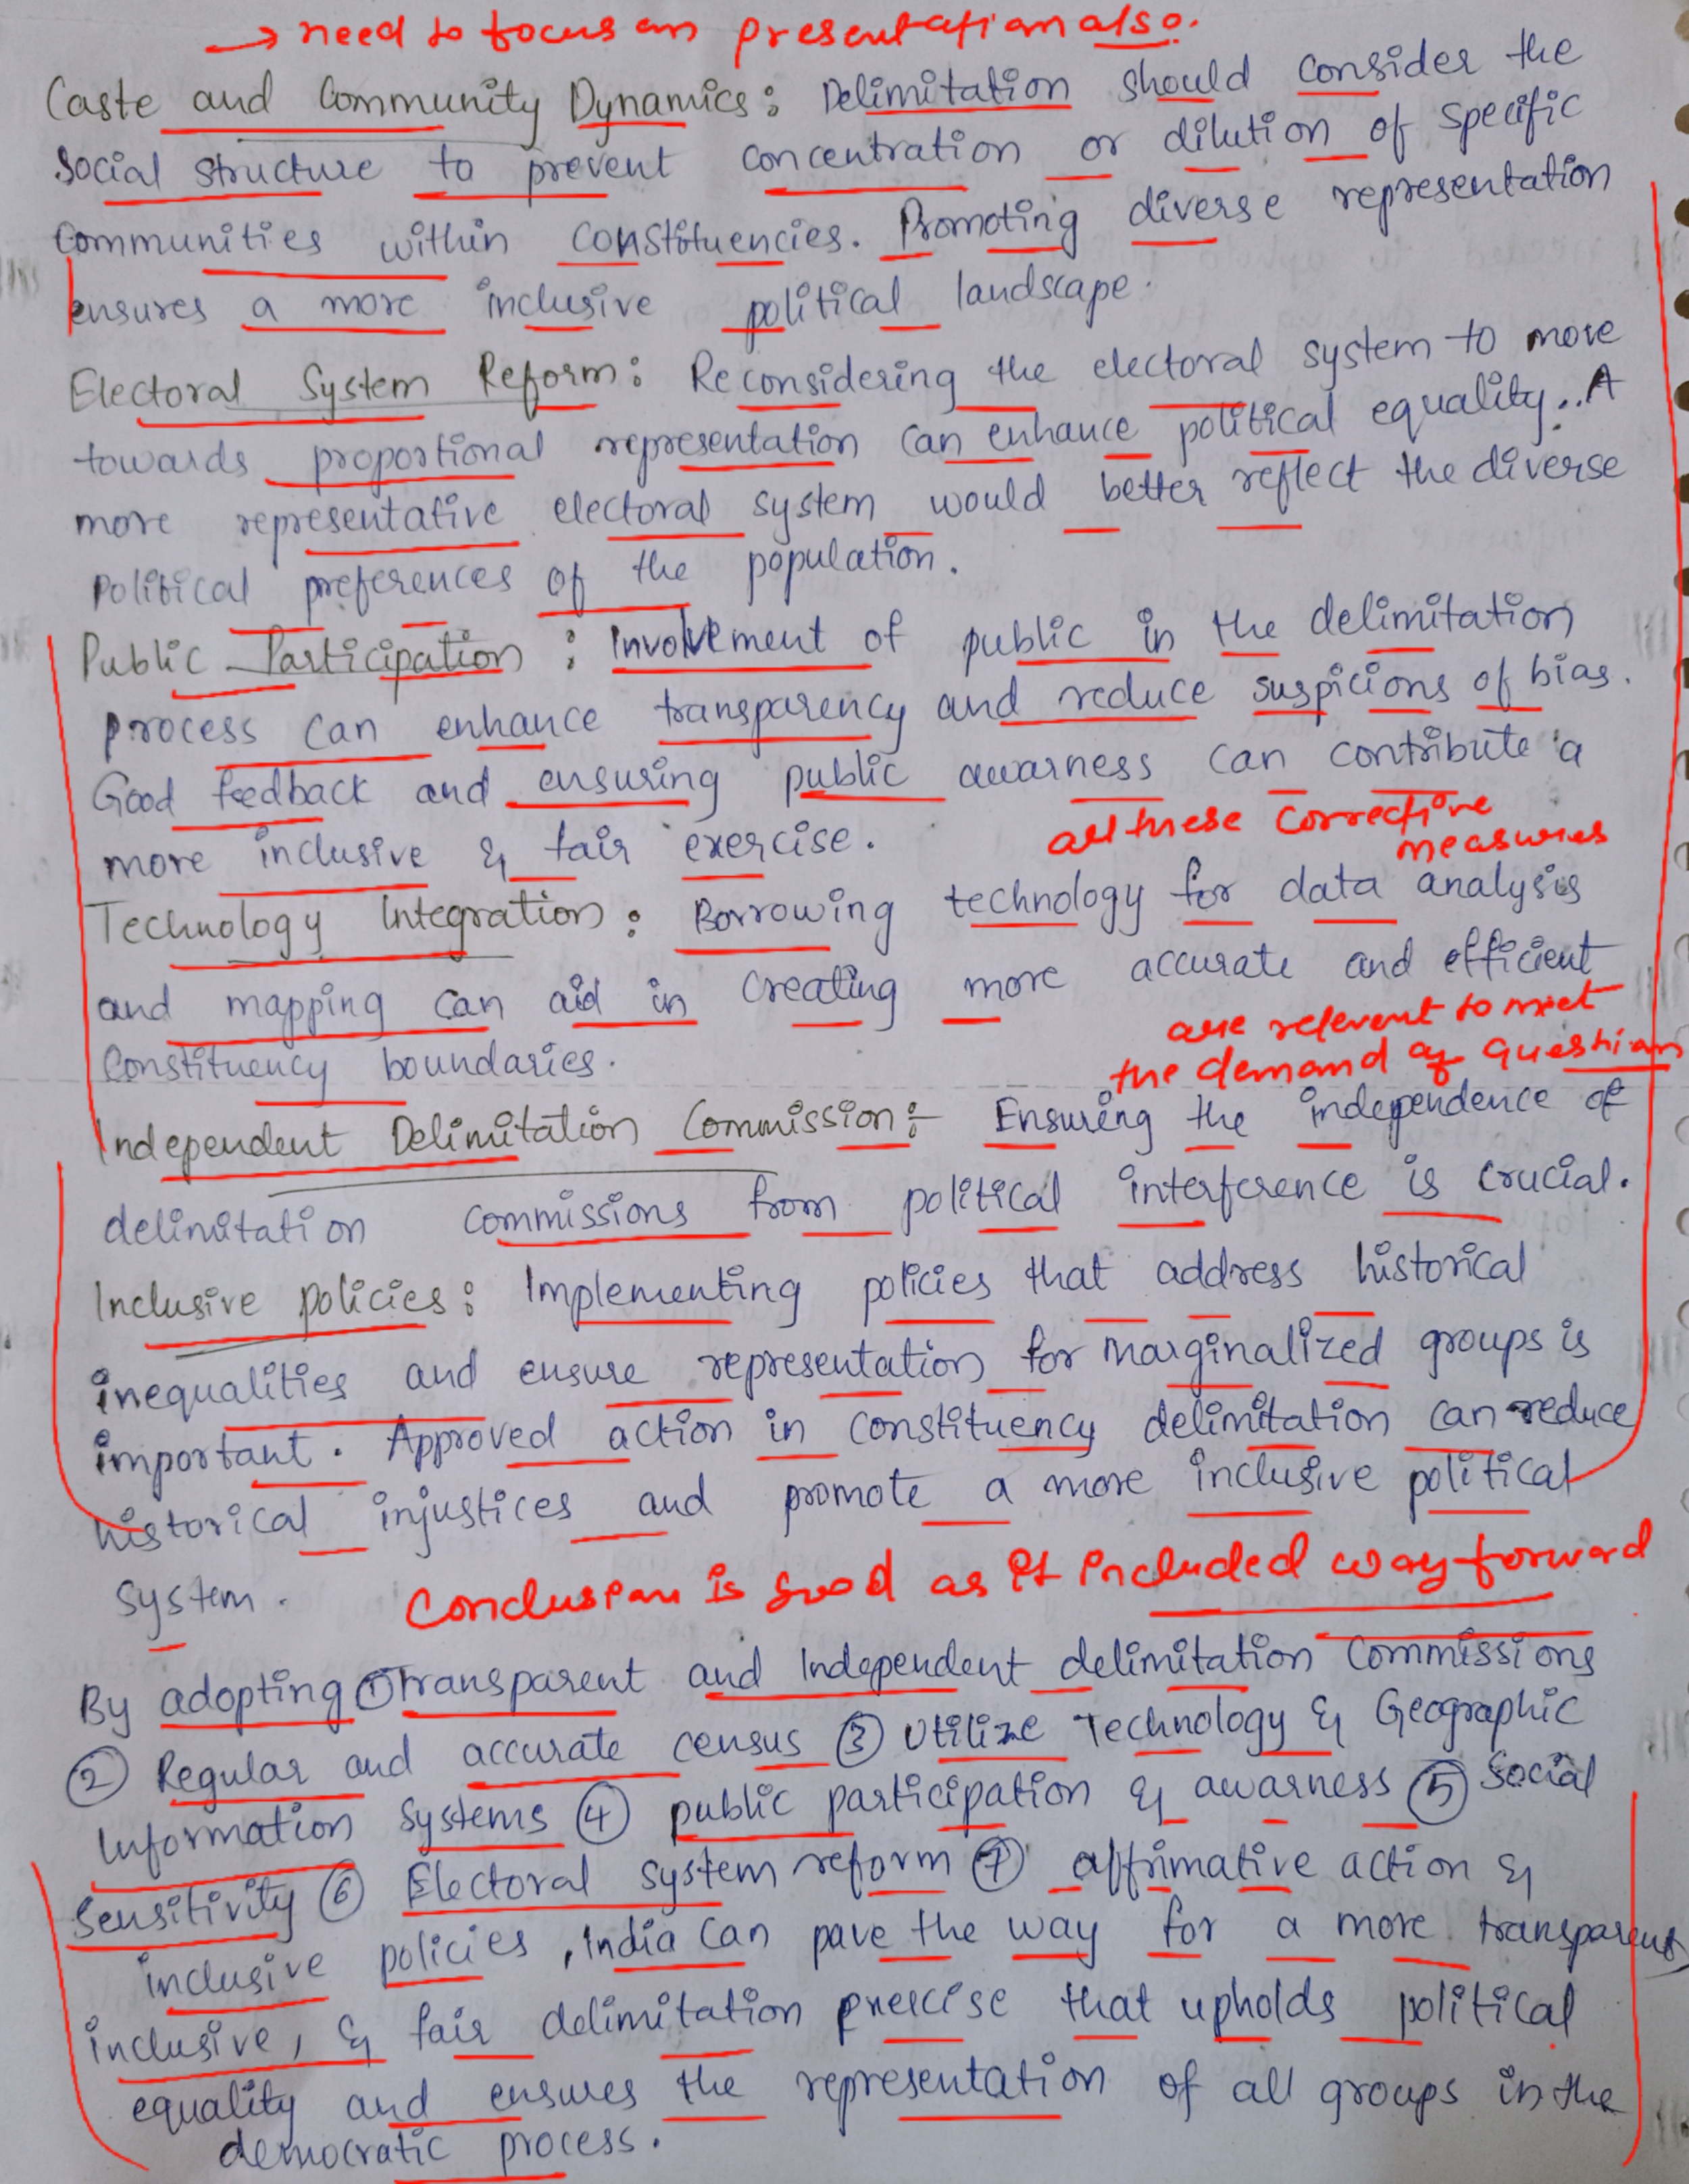 → need to focus on presentation also.
Caste and Community Dynamics: Delimitation should consider the
Social structure to prevent concentration or dilution of specific
Communities within constituencies. Promoting diverse representation
ensures a more inclusive political landscape.
Electoral System Reform: Reconsidering the electoral system to move
towards proportional representation can enhance political equality.. A
more representative electoral system would better reflect the diverse
Political preferences of the population.
Public Participation : Involvement of public in the delimitation
process can enhance transparency and reduce suspicions of bias.
Good feedback and ensuring public awarness can contribute a
more inclusive & fair exercise.
all these corrective
measures
Technology Integration: Borrowing technology for data analysis
and mapping can aid in creating more accurate and efficient
Constituency boundaries.
are relevent to meet
the demand of question
Independent Delimitation Commission:- Ensuring the independence of
delimitation commissions from political interference is crucial.
Inclusive policies: Implementing policies that address historical
inequalities and ensure representation for marginalized groups is
important. Approved action in constituency delimitation can reduce
historical injustices and promote a more inclusive political
system.
Conclusion is good as it included way forward
By adopting ① transparent and Independent delimitation Commissions
② Regular and accurate census ③ Utilize Technology & Geographic
Information Systems ④ public participation & awarness ⑤ Social
Sensitivity ⑥ Electoral system reform ⑦ affrimative action &
inclusive policies, India can pave the way for a more transparent,
inclusive, & fair delimitation prercise that upholds political
equality and ensures the representation of all groups in the
democratic process.